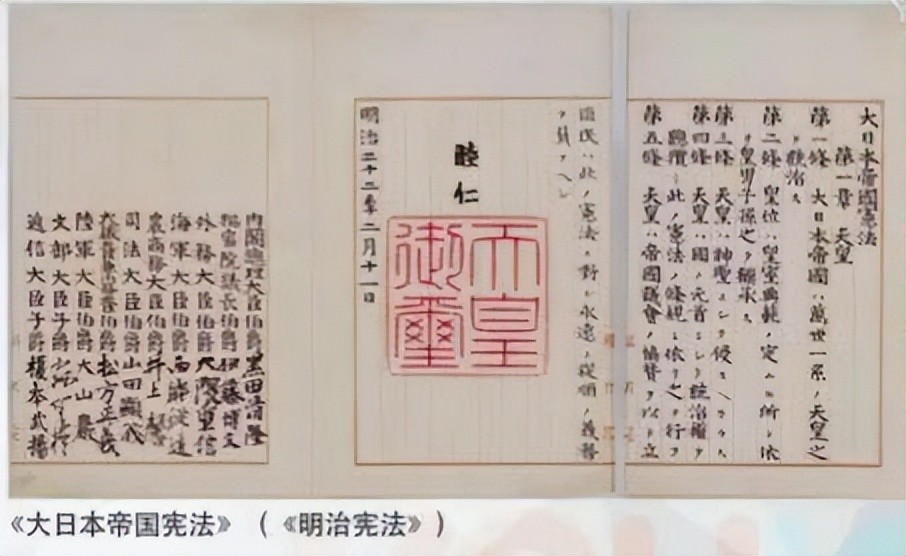 大日本帝國憲法
第一章 天皇
第一條 大日本帝國ハ萬世一系ノ天皇之
ヲ統治ス
第二條 皇位ハ皇室典範ノ定ムル所ニ依
リ皇男子孫之ヲ繼承ス
第三條 天皇ハ神聖ニシテ侵スヘカラス
第四條 天皇ハ國ノ元首ニシテ統治權ヲ
總攬シ此ノ憲法ノ條規ニ依リ之ヲ行フ
第五條 天皇ハ帝國議會ノ協賛ヲ以テ立
臣民ハ此ノ憲法ニ對シ永遠ニ從順ノ義務
ヲ負フヘシ
睦仁
天皇
御璽
明治二十二年二月十一日
内閣總理大臣伯爵黒田清隆
樞密院議長伯爵伊藤博文
外務大臣伯爵大隈重信
海軍大臣伯爵西郷從道
農商務大臣伯爵井上馨
司法大臣伯爵山田顯義
伯爵松方正義
陸軍大臣伯爵大山巖
文部大臣子爵
遞信大臣子爵榎本武揚
《大日本帝国宪法》（《明治宪法》）